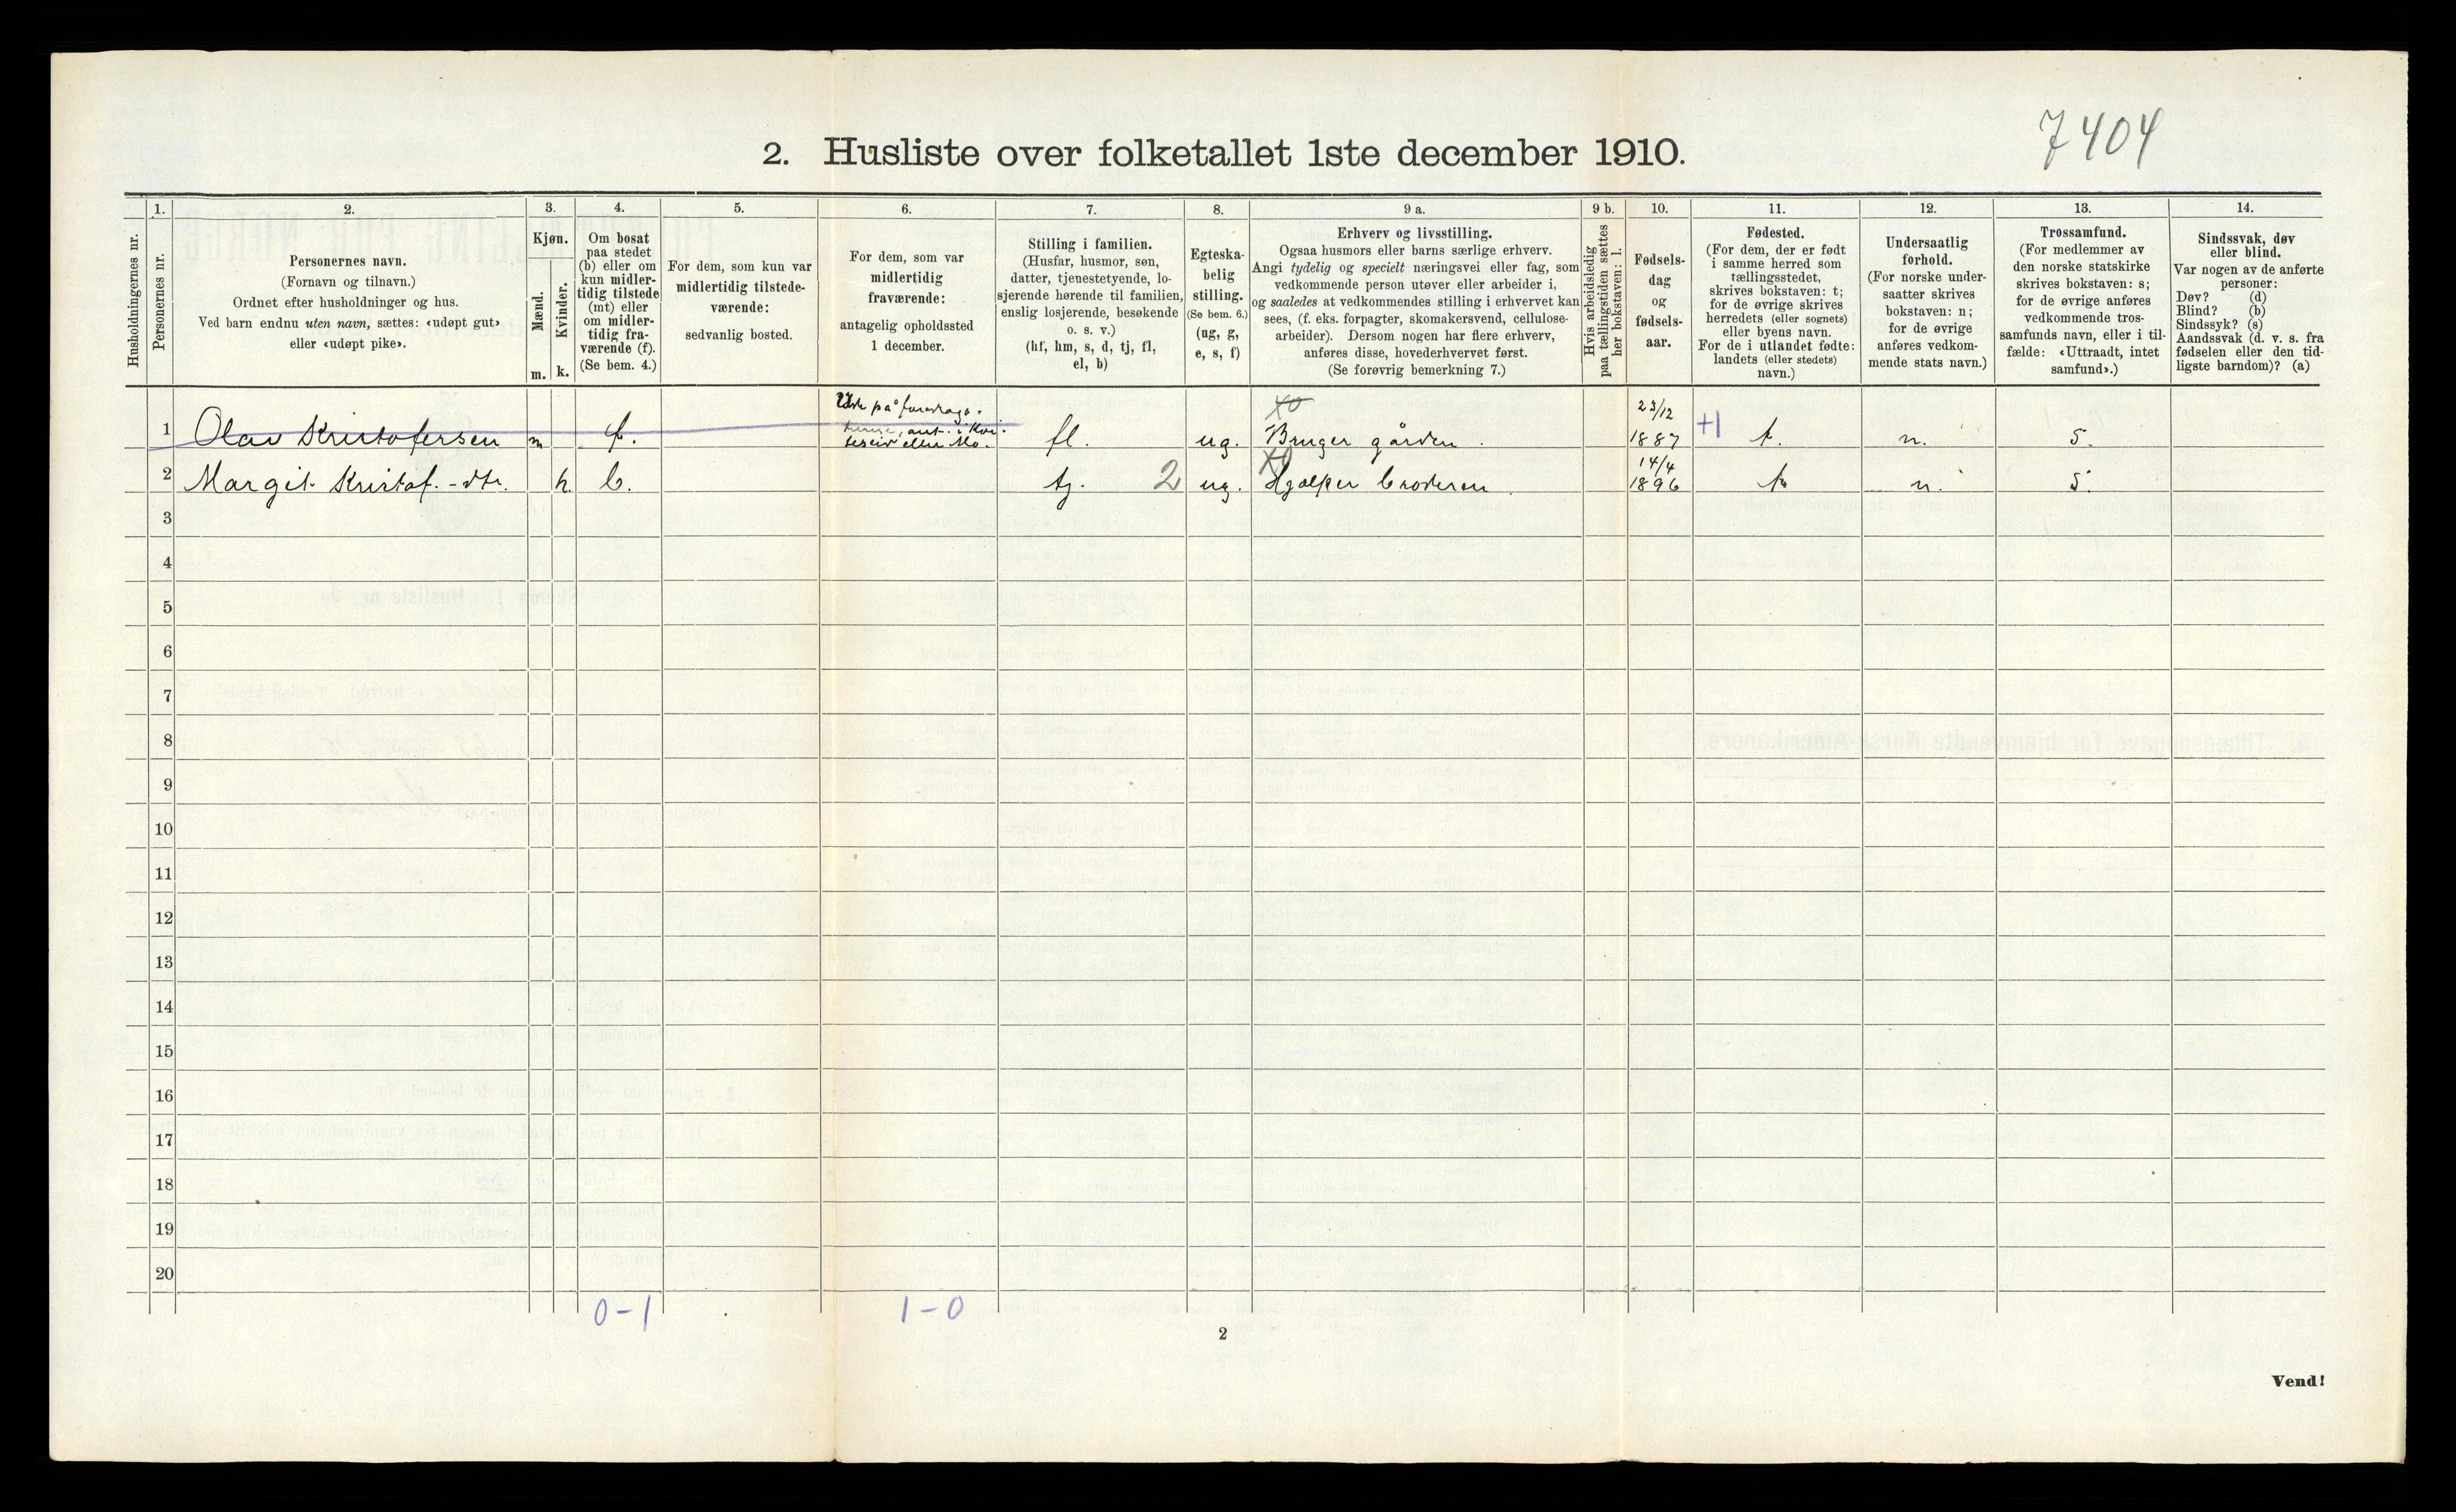 7404
2. Husliste over folketallet 1ste december 1910.
Husholdningernes nr.
1.
Personernes nr.
2.
Personernes navn.
(Fornavn og tilnavn.)
Ordnet efter husholdninger og hus.
Ved barn endnu uten navn, sættes: «udøpt gut»
eller «udøpt pike».
3.
Kjøn.
Mænd.
Kvinder.
m.
k.
4.
Om bosat
paa stedet
(b) eller om
kun midler-
tidig tilstede
(mt) eller
om midler-
tidig fra-
værende (f).
(Se bem. 4.)
5.
For dem, som kun var
midlertidig tilstede-
værende:
sedvanlig bosted.
6.
For dem, som var
midlertidig
fraværende:
antagelig opholdssted
1 december.
7.
Stilling i familien.
(Husfar, husmor, søn,
datter, tjenestetyende, lo-
sjerende hørende til familien,
enslig losjerende, besøkende
o. s. v.)
(hf, hm, s, d, tj, fl,
el, b)
8.
Egteska-
belig
stilling.
(Se bem. 6.)
(ug, g,
e, s, f)
9 a.
Erhverv og livsstilling.
Ogsaa husmors eller barns særlige erhverv.
Angi tydelig og specielt næringsvei eller fag, som
vedkommende person utøver eller arbeider i,
og saaledes at vedkommendes stilling i erhvervet kan
sees, (f. eks. forpagter, skomakersvend, cellulose-
arbeider). Dersom nogen har flere erhverv,
anføres disse, hovederhvervet først.
(Se forøvrig bemerkning 7.)
9 b.
Hvis arbeidsledig
paa tællingstiden sættes
her bokstaven: l.
10.
Fødsels-
dag
og
fødsels-
aar.
11.
Fødested.
(For dem, der er født
i samme herred som
tællingsstedet,
skrives bokstaven: t;
for de øvrige skrives
herredets (eller sognets)
eller byens navn.
For de i utlandet fødte:
landets (eller stedets)
navn.)
12.
Undersaatlig
forhold.
(For norske under-
saatter skrives
bokstaven: n;
for de øvrige
anføres vedkom-
mende stats navn.)
13.
Trossamfund.
(For medlemmer av
den norske statskirke
skrives bokstaven: s;
for de øvrige anføres
vedkommende tros-
samfunds navn, eller i til-
fælde: «Uttraadt, intet
samfund».)
14.
Sindssvak, døv
eller blind.
Var nogen av de anførte
personer:
Døv? (d)
Blind? (b)
Sindssyk? (s)
Aandssvak (d. v. s. fra
fødselen eller den tid-
ligste barndom)? (a)
1 Olav Kristofersen m f. Ute på foredrags- turne, ant. i Kvi- teseid eller Mo. fl. ug. Bruger gården. 23/12 1887 +1 t. n. s.
2 Margit Kristof.-dtr. k. b. tj. 2 ug. Hjælper broderen. 14/4 1896 t. n. s.
3
4
5
6
7
8
9
10
11
12
13
14
15
16
17
18
19
20
0-1
1-0
2
Vend!